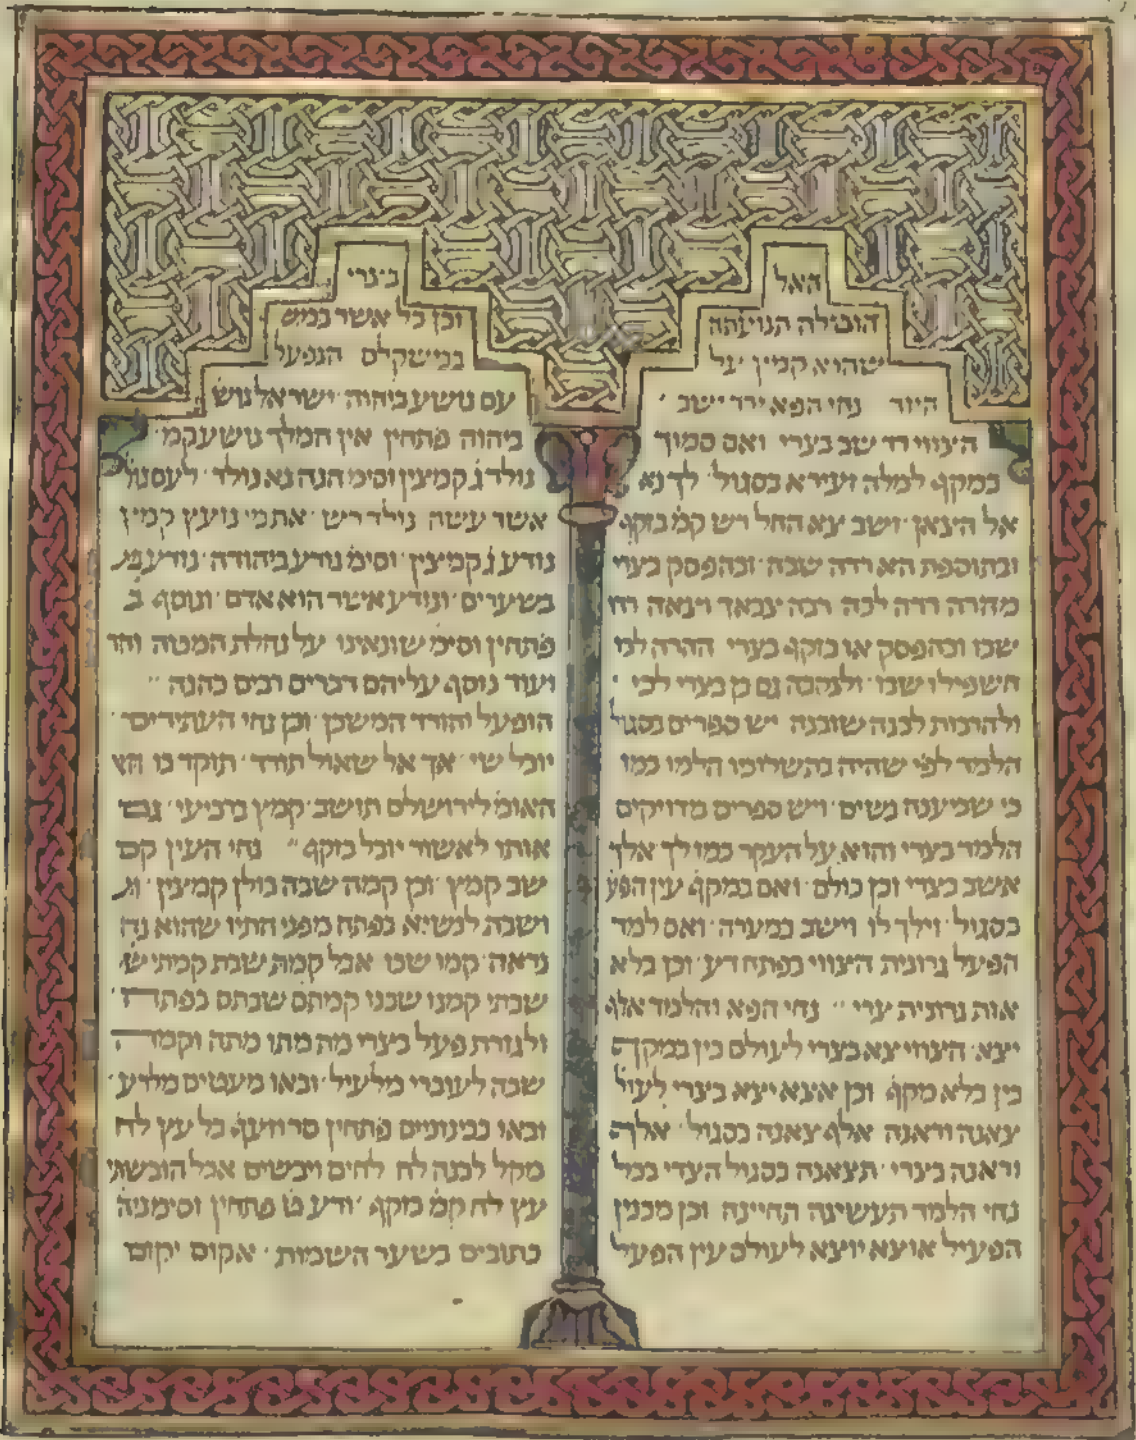 האל
הובילה הנויתהה
שהוא קמין על
היוד נחי הפא ירד ישב
הצווי רד שב בצרי ואם סמוך
במקף למלה זעירא בסגול לך נא
אל הצאן ושב צא החל רש קמ בזקף
ובתוספת הא רדה שבה ובהפסק בצרי
מהרה רדה לכה רבה צבאך ויצאה
שבו ובהפסק או בזקף בצרי ההרה לכו
השפילו שבו ולנקבה גם כן בצרי לכי
ולהרבות לכנה שובנה יש ספרים בסגול
הלמד לפי שהיה בהשלומו הלמו כמו
כי שמענה נשים ויש ספרים מדויקים
הלמד בצרי והוא על העקר כמו לך אלך
אשב בצרי וכן כולם ואם במקף עין הפע
בסגול וילך לו וישב במערה ואם למד
הפעל גרונית הצווי בפתח דע וכן בלא
אות גרונית נחי הפא והלמד אלף
יצא הצווי צא בצרי לעולם בין במקף
בין בלא מקף וכן אצא יצא בצרי לעול
צאנה וראנה אלף צאנה בסגול אלף
וראנה בצרי תצאנה בסגול הצדי בכל
נחי הלמד תעשינה תחיינה וכן מבנין
הפעיל אוצא יוצא לעולם עין הפעל
בצרי
וכן כל אשר במש
במישקלם הנפעל
עם נושע ביהוה ישראל נוש
ביהוה פתחין אין המלך נושע קמ
נולד ג קמיצין וסימ הנה נא נולד לעם נול
אשר עשה נולד רש את מי נועץ קמין
נודע ג קמיצין וסימ נודע ביהודה נודע
בשערים ונודע אישר הוא אדם ונוסף ב
פתחין וסימ שונאינו על נהלת המטה והו
ועוד נוסף עליהם דברים רבים כהנה
הופעל והורד המשכן וכן נחי העתידים
יובל שי אך אל שאול תורד תוקד בו
האומ לירושלם תושב קמץ ברביעי גם
אותו לאשור יובל בזקף נחי העין קם
שב קמץ וכן קמה שבה כולן קמיצין
ושבה לנשיא בפתח מפני התיו שהוא נח
נראה קמו שבו אבל קמת שבת קמתי ש
שבתי קמנו שבנו קמתם שבתם בפתח
ולגזרת פעל בצרי מת מתו מתה וקמה
שבה לעוברי מלעיל ובאו מעטים מלרע
ובאו בבינונים פתחין סר וזעף כל עץ לח
מקל לבנה לח לחים ויבשים אבל הובשתי
עץ לח קמ בזקף ודע ט פתחין וסימניה
כתובים בשער השמות אקום יקום